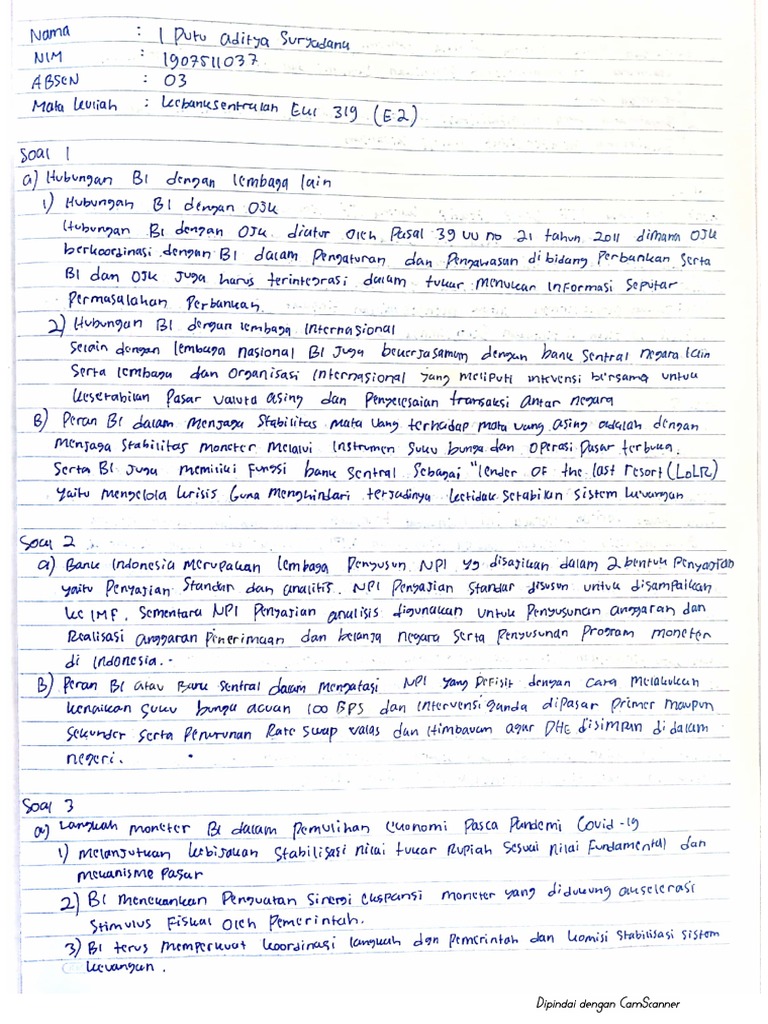 Nama : I Putu Aditya Suryadana
NIM : 1907511037
ABSEN : 03
Mata kuliah : kebanksentralan EKI 319 (E2)
Soal 1
a) Hubungan BI dengan lembaga lain
1) Hubungan BI dengan OJK
Hubungan BI dengan OJK diatur oleh Pasal 39 UU no 21 tahun 2011 dimana OJK
berkoordinasi dengan BI dalam Pengaturan dan Pengawasan dibidang Perbankan Serta
BI dan OJK Juga harus terintegrasi dalam tukar menukar informasi seputar
Permasalahan Perbankan.
2) Hubungan BI dengan lembaga Internasional
Selain dengan lembaga nasional BI Juga bekerjasama dengan bank sentral negara lain
Serta lembaga dan organisasi Internasional yang meliputi intevensi bersama untuk
kesetabilan Pasar valuta asing dan Penyelesaian transaksi antar negara
B) Peran BI dalam menjaga Stabilitas mata uang terhadap mata uang asing adalah dengan
menjaga stabilitas moneter melalui Instrumen Suku bunga dan operasi Pasar terbuka.
Serta BI Juga memiliki Fungsi bank Sentral Sebagai "lender OF the last resort (LoLR)
yaitu mengelola krisis Guna menghindari terjadinya ketidak setabilan sistem keuangan
Soal 2
a) Bank Indonesia merupakan lembaga Penyusun NPI yg disajikan dalam 2 bentuk Penyajian
yaitu Penyajian Standar dan analitis. NPI Penyajian Standar disusun untuk disampaikan
ke IMF. Sementara NPI Penyajian analisis digunakan untuk Penyusunan anggaran dan
Realisasi anggaran Penerimaan dan belanja negara serta Penyusunan Program moneter
di Indonesia..
B) Peran BI atau Bank Sentral dalam Mengatasi NPI yang Defisit dengan cara Melakukan
kenaikan Suku bunga acuan 100 BPS dan intervensi ganda dipasar primer maupun
Sekunder serta Penurunan Rate Swap valas dan Himbauan agar DHE disimpan di dalam
negeri.
Soal 3
a) Langkah moneter BI dalam Pemulihan Ekonomi Pasca Pandemi Covid-19
1) melanjutkan kebijakan Stabilisasi nilai tukar Rupiah Sesuai nilai Fundamental dan
mekanisme Pasar
2) BI menekankan Penguatan Sinergi ekspansi moneter yang didukung akselerasi
Stimulus Fiskal oleh Pemerintah.
3) BI terus memperkuat koordinasi langkah dgn Pemerintah dan komisi Stabilisasi sistem
keuangan.
Dipindai dengan CamScanner